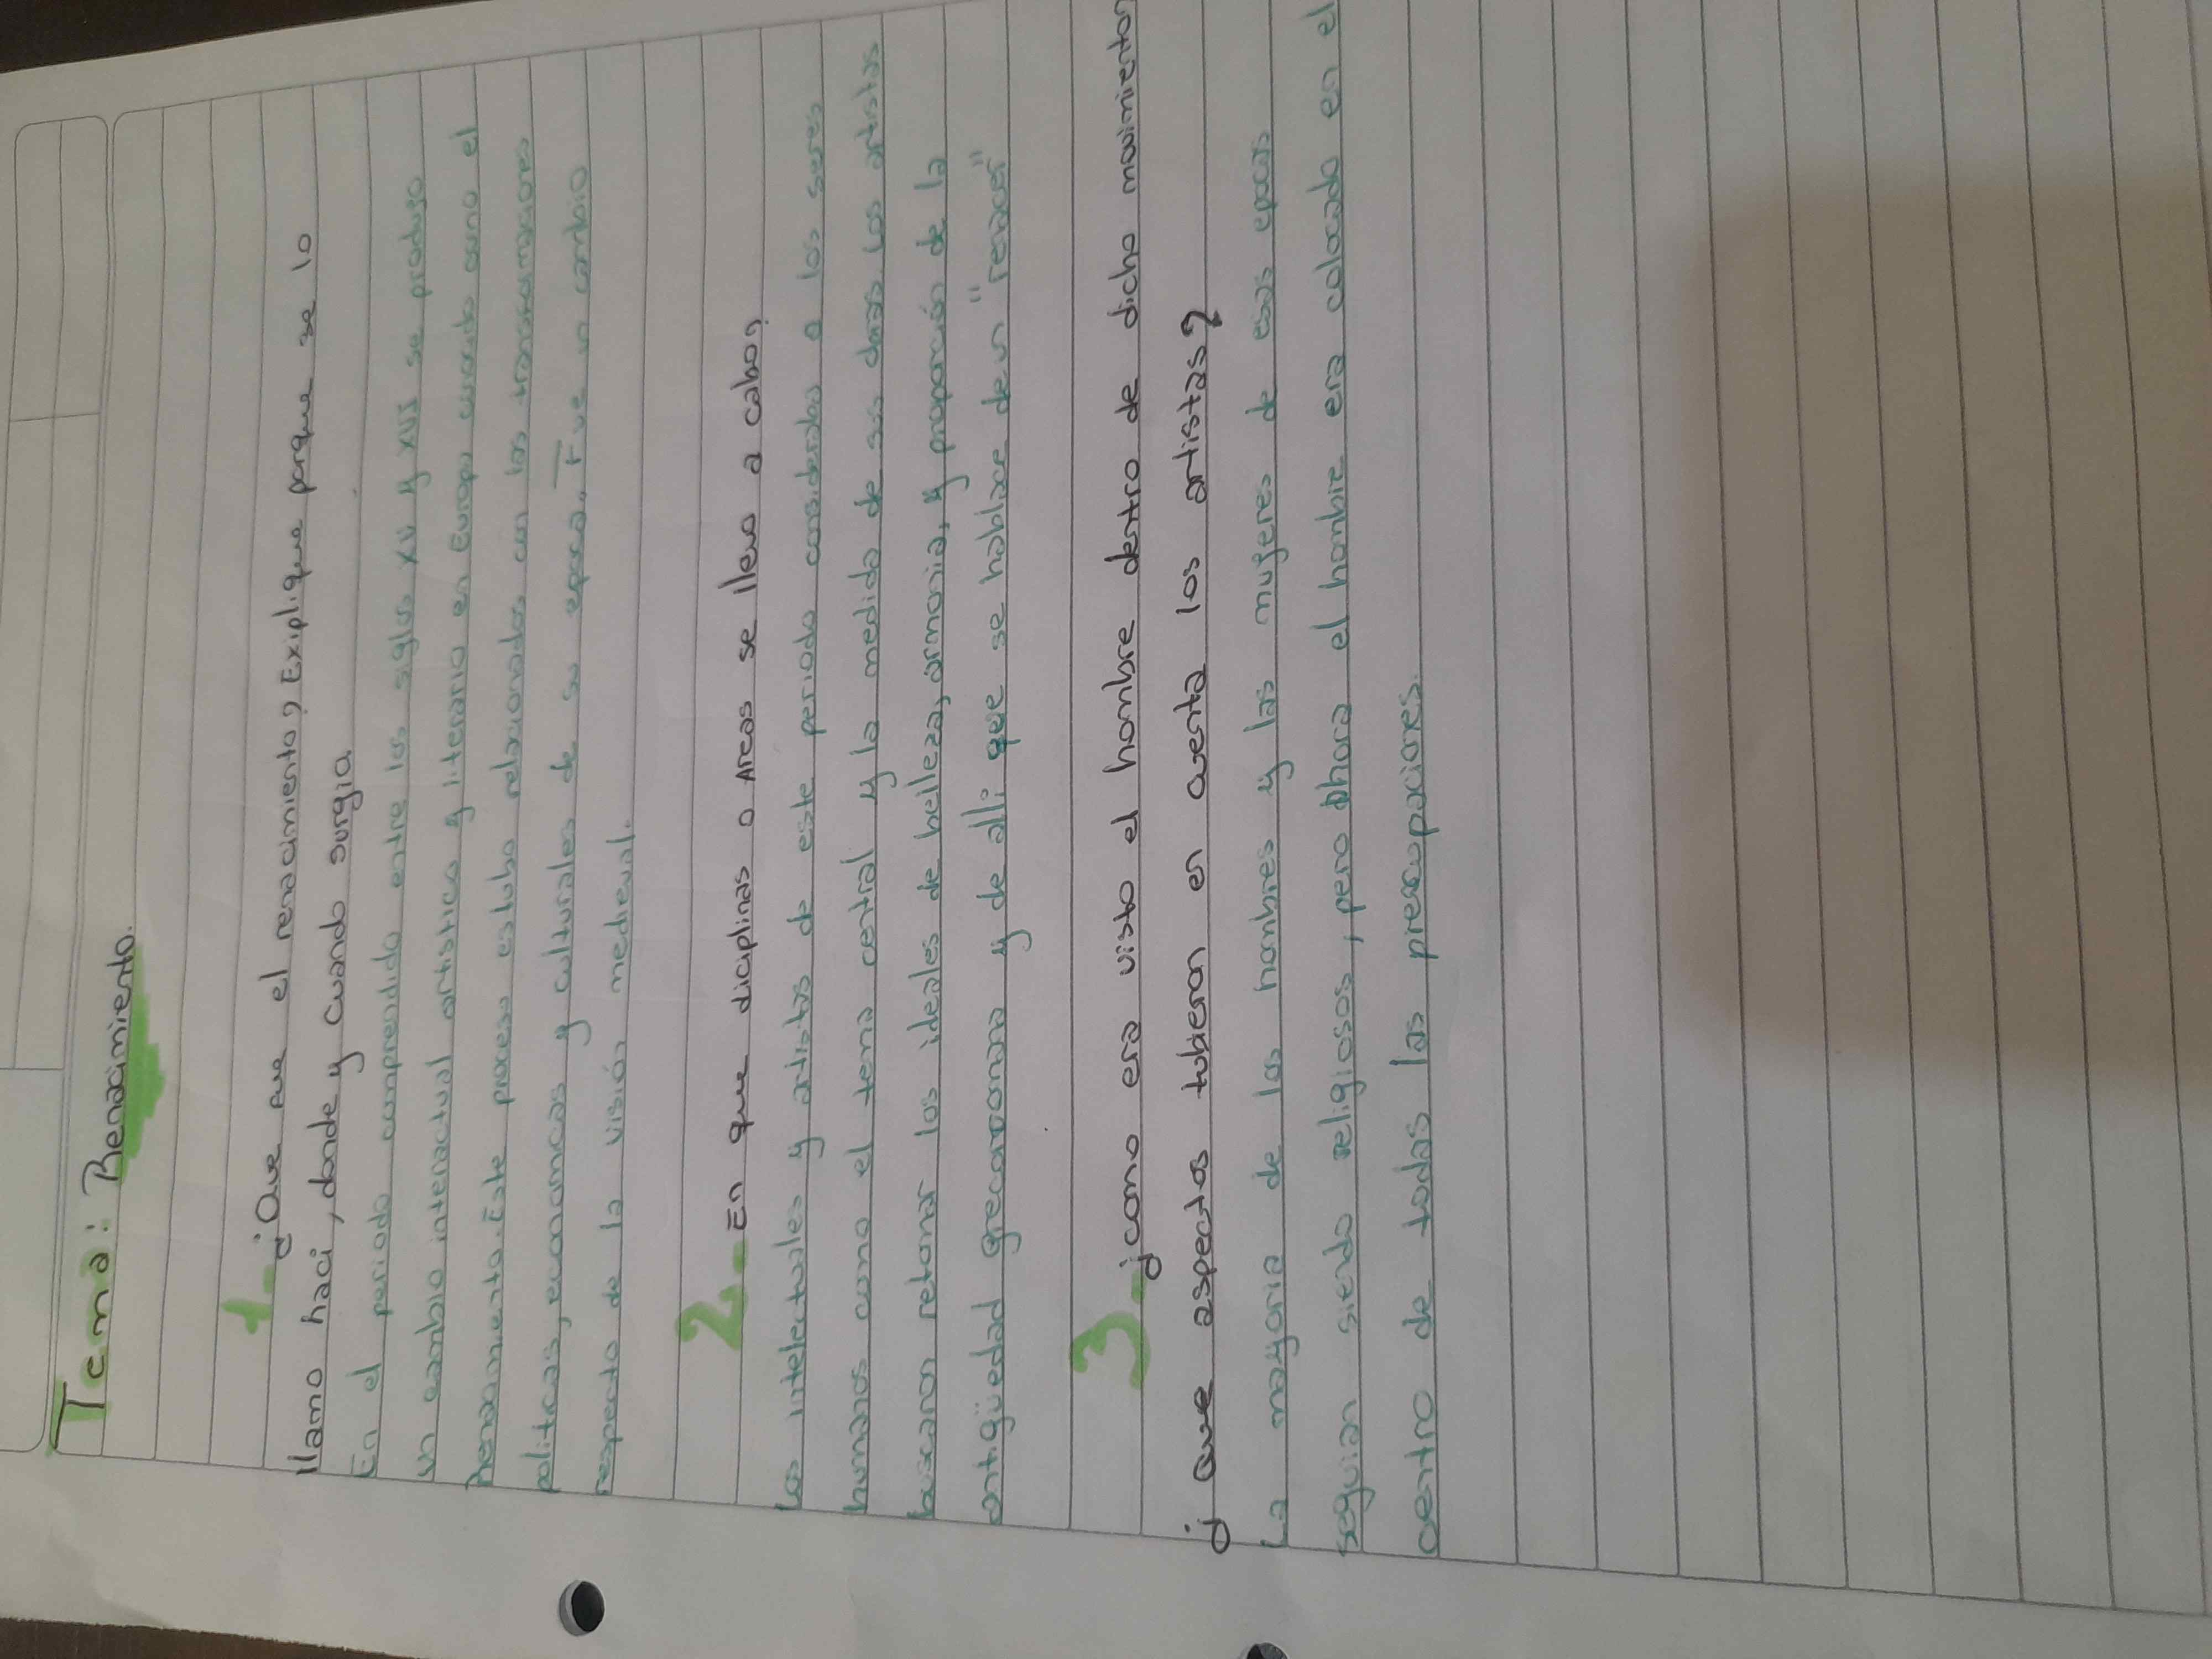 Tema: Renacimiento.
1- ¿Que fue el renacimiento? Explique porque se lo
llamo haci, donde y cuando surgio.
En el periodo comprendido entre los siglos XV y XVI se produjo
un cambio interactual artistico y literario en Europa cuando como el
Renacimiento. Este proceso estubo relacionados con las transformaciones
politicas, economicas y culturales de su epoca, Fue un cambio
respecto de la visión medieval.
2- En que diciplinas o Areas se llevo a cabo?
Los intelectuales y artistas de este periodo consideraba a los seres
humanos como el tema central y la medida de sus obras. Los artistas
buscaron retomar los ideales de belleza, armonia, y proporción de la
antigüedad grecorromana y de alli que se hablace de un "renacer"
3- ¿como era visto el hombre dentro de dicho movimiento?
¿ Que aspectos tubieron en cuenta los artistas?
La mayoria de los hombres y las mujeres de esas epocas
seguian siendo religiosos, pero ahora el hombre era colocado en el
centro de todas las preocupaciones.